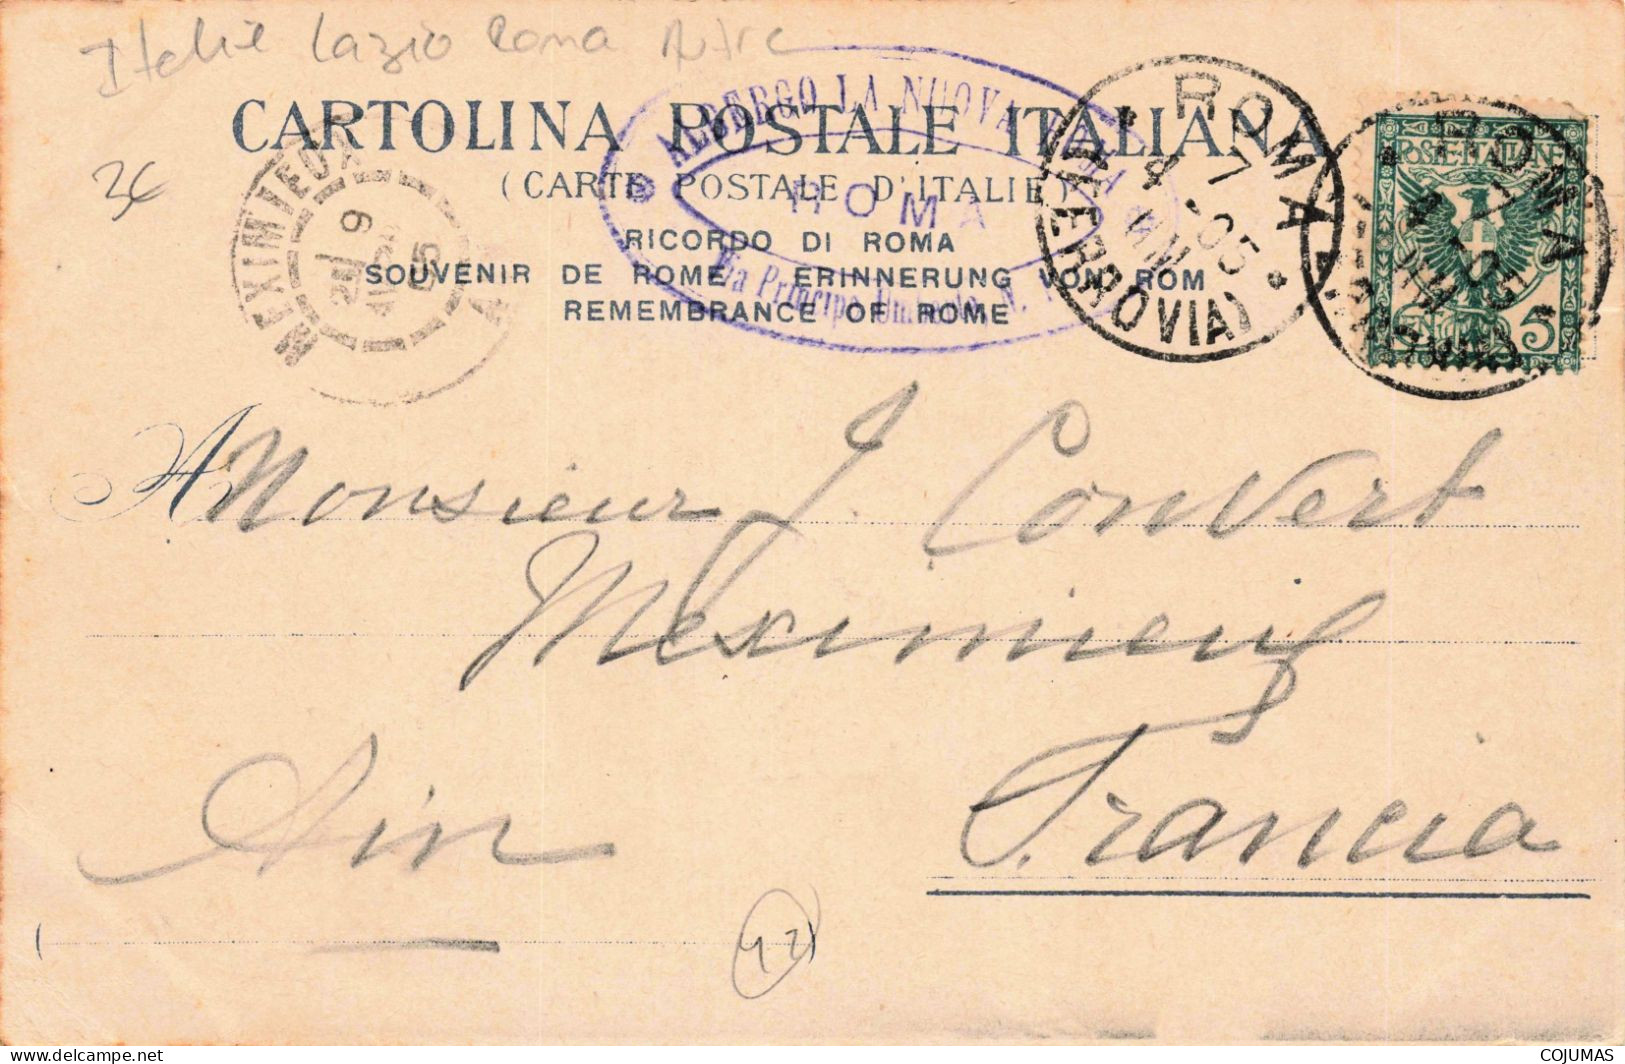 Italie Lazio Roma
CARTOLINA POSTALE ITALIANA
(CARTE POSTALE D'ITALIE)
RICORDO DI ROMA
SOUVENIR DE ROME ERINNERUNG VON ROM
REMEMBRANCE OF ROME
ALBERGO LA NUOVA ROMA
ROMA
Via Principe Umberto, N.
ROMA
4 7 05
(FERROVIA)
ROMA
(FERROVIA)
POSTE ITALIANE
CENT. 5
3€
MEXIMIEUX
9
05
A Monsieur J. Convert
Meximieux
Ain
Francia
42
COJUMAS